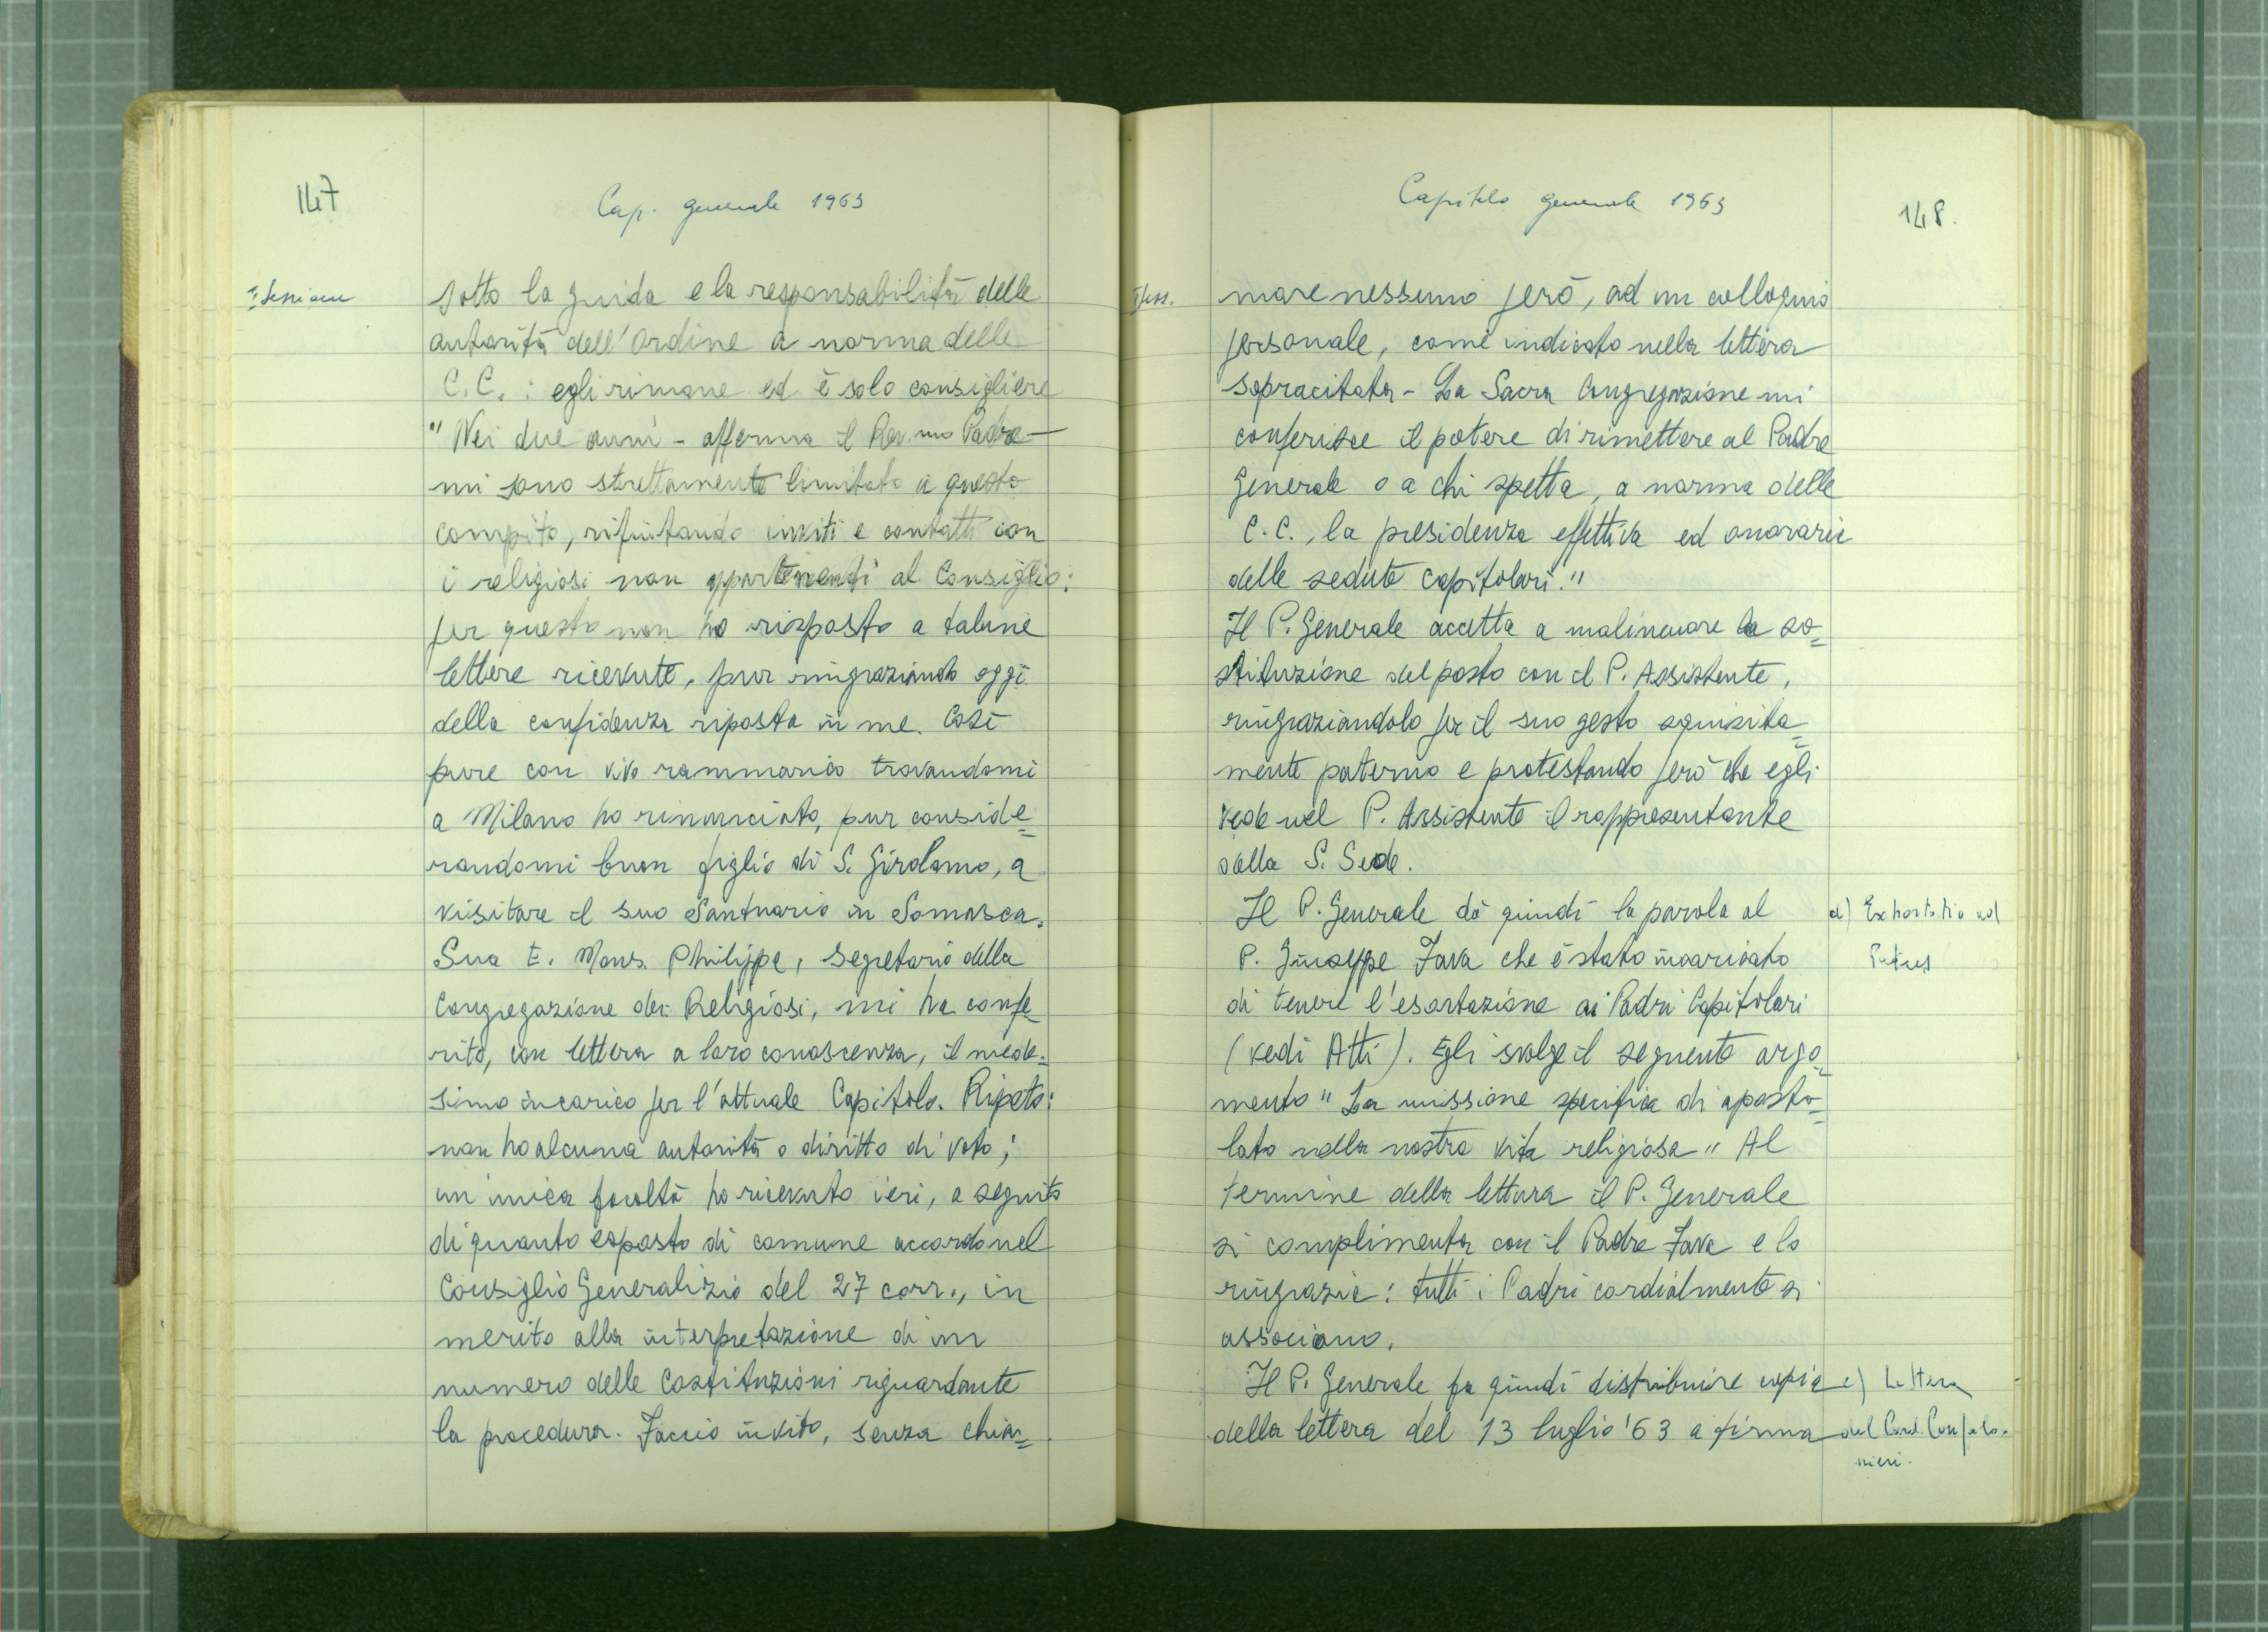 147
Cap. generale 1963
I Sessione
sotto la guida e la responsabilità delle
autorità dell'Ordine a norma delle
C.C.: egli rimane ed è solo consigliere
"Nei due anni - afferma il Rev.mo Padre -
mi sono strettamente limitato a questo
compito, rifiutando inviti e contatti con
i religiosi non appartenenti al Consiglio:
per questo non ho risposto a talune
lettere ricevute, pur ringraziando oggi
della confidenza riposta in me. Così
pure con vivo rammarico trovandomi
a Milano ho rinunciato, pur conside=
randomi buon figlio di S. Girolamo, a
visitare il suo Santuario in Somasca.
Sua E. Mons. Philippe, segretario della
Congregazione dei Religiosi, mi ha confe=
rito, con lettera a loro conoscenza, il mede=
simo incarico per l'attuale Capitolo. Ripeto:
non ho alcuna autorità o diritto di voto;
un'unica facoltà ho ricevuto ieri, a seguito
di quanto esposto di comune accordo nel
Consiglio Generalizio del 27 corr., in
merito alla interpretazione di un
numero delle Costituzioni riguardante
la procedura. Faccio invito, senza chia=
Capitolo generale 1963
148.
I Sess.
mare nessuno però, ad un colloquio
personale, come indicato nella lettera
sopracitata - La Sacra Congregazione mi
conferisce il potere di rimettere al Padre
Generale o a chi spetta, a norma delle
C.C., la presidenza effettiva ed onoraria
delle sedute capitolari."
Il P. Generale accetta a malincuore la so=
stituzione del posto con il P. Assistente,
ringraziandolo per il suo gesto squisita=
mente paterno e protestando però che egli
vede nel P. Assistente il rappresentante
della S. Sede.
Il P. Generale dà quindi la parola al
d) Exhortatio ad
P. Giuseppe Fava che è stato incaricato
Patres
di tenere l'esortazione ai Padri Capitolari
(vedi Atti). Egli svolge il seguente argo=
mento "La missione specifica di aposto=
lato nella nostra vita religiosa" Al
termine della lettura il P. Generale
si complimenta con il Padre Fava e lo
ringrazia: tutti i Padri cordialmente si
associano.
Il P. Generale fa quindi distribuire copia
e) Lettera
della lettera del 13 luglio '63 a firma
del Card. Confalo=
nieri.